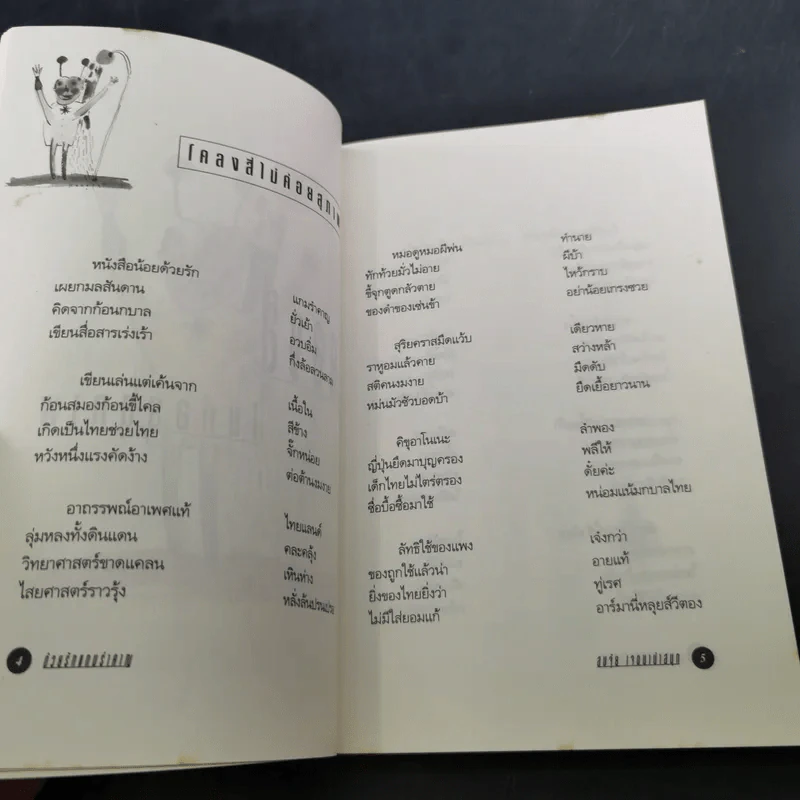 โคลงสี่ไม่ค่อยสุภาพ
หนังสือน้อยด้วยรัก แกมรำคาญ
เผยกมลสันดาน ยั่วเย้า
คิดจากก้อนกบาล อวบอิ่ม
เขียนสื่อสารเร่งเร้า กึ่งล้อลวนลาม
เขียนเล่นแต่เค้นจาก เนื้อใน
ก้อนสมองก้อนขี้ไคล สีข้าง
เกิดเป็นไทยช่วยไทย จั๊กหน่อย
หวังหนึ่งแรงคัดง้าง ต่อต้านงมงาย
อาถรรพณ์อาเพศแท้ ไทยแลนด์
ลุ่มหลงทั้งดินแดน คละคลุ้ง
วิทยาศาสตร์ขาดแคลน เหินห่าง
ไสยศาสตร์ราวรุ้ง หลั่งล้นปรนเปรอ
4 ด้วยรักแกมรำคาญ
หมอดูหมอผีพ่น ทำนาย
ทักท้วยมั่วไม่อาย ผีบ้า
ขี้จุกตูดกลัวตาย ไหว้กราบ
ของดำของเซ่นช้า อย่าน้อยเกรงซวย
สุริยคราสมืดแว้บ เดียวหาย
ราหูอมแล้วคาย สว่างหล้า
สติคนงมงาย มืดดับ
หม่นมัวชั่วบอดบ้า ยืดเยื้อยาวนาน
คิขุอาโนเนะ ลำพอง
ญี่ปุ่นยึดมาบุญครอง พลีให้
เด็กไทยไม่ไตร่ตรอง ดั๋ยค่ะ
ซื่อบื้อซื้อมาใช้ หน่อมแน้มกบาลไทย
ลัทธิใช้ของแพง เจ๋งกว่า
ของถูกใช้แล้วน่า อายแท้
ยิ่งของไทยยิ่งว่า ทู่เรศ
ไม่มีใส่ยอมแก้ อาร์มานี่หลุยส์วีตอง
5